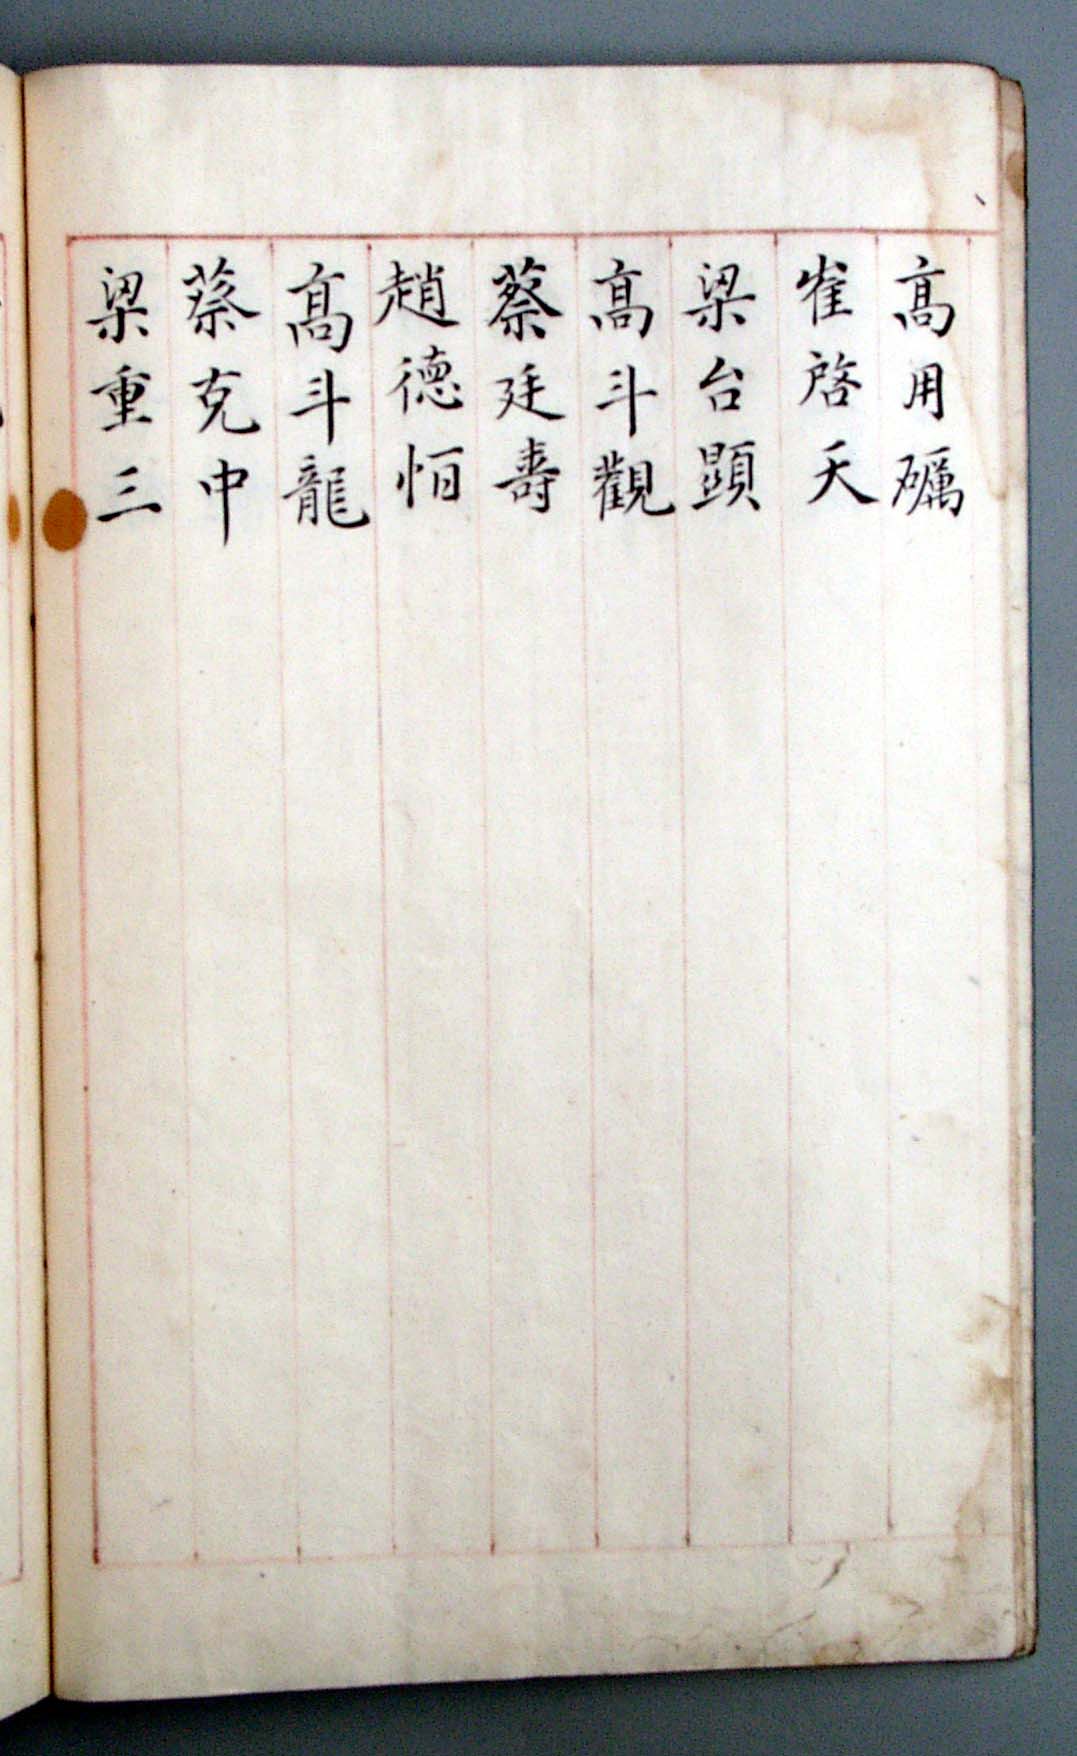 高用礪
崔啓天
梁台顯
高斗觀
蔡廷壽
趙德怕
高斗龍
蔡克中
梁重三